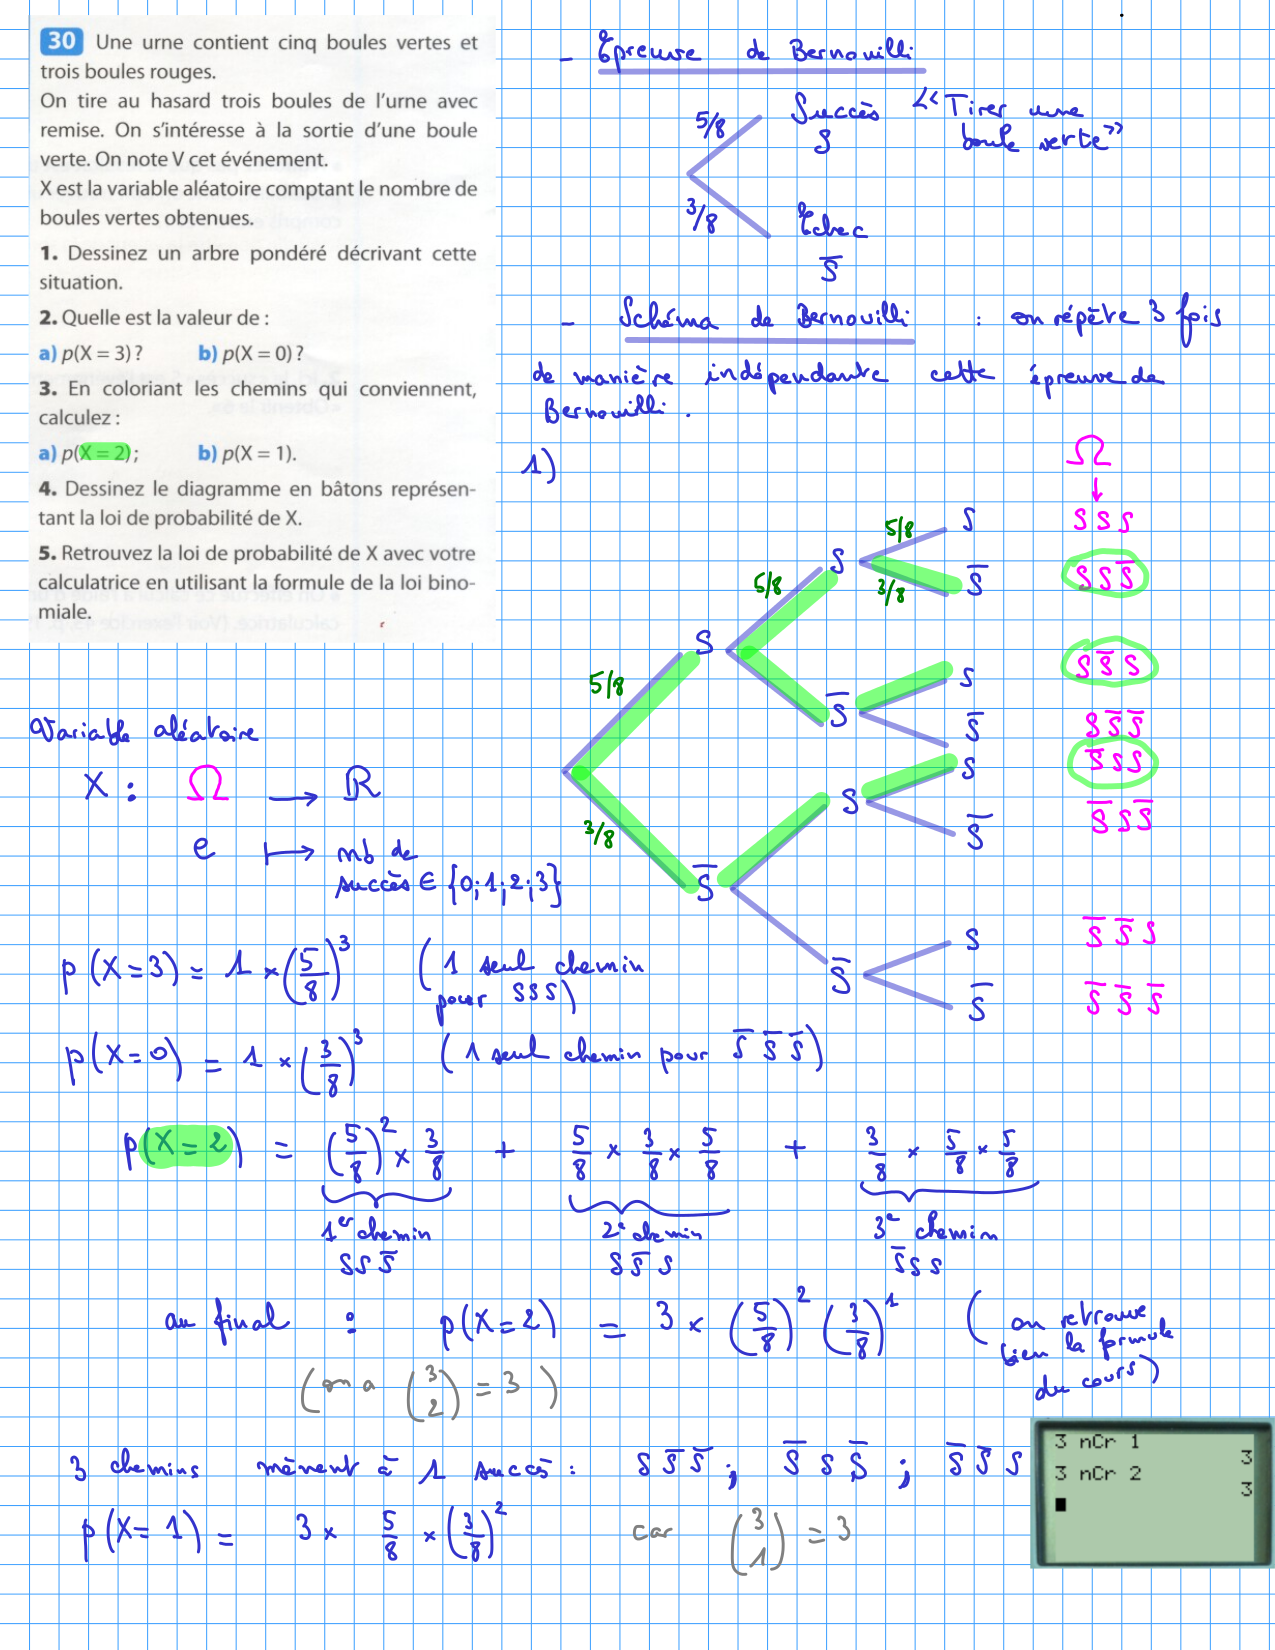 30 Une urne contient cinq boules vertes et
trois boules rouges.
On tire au hasard trois boules de l'urne avec
remise. On s'intéresse à la sortie d'une boule
verte. On note V cet événement.
X est la variable aléatoire comptant le nombre de
boules vertes obtenues.
1. Dessinez un arbre pondéré décrivant cette
situation.
2. Quelle est la valeur de :
a) p(X = 3) ? b) p(X = 0) ?
3. En coloriant les chemins qui conviennent,
calculez :
a) p(X = 2) ; b) p(X = 1).
4. Dessinez le diagramme en bâtons représen-
tant la loi de probabilité de X.
5. Retrouvez la loi de probabilité de X avec votre
calculatrice en utilisant la formule de la loi bino-
miale.
- Épreuve de Bernouilli
5/8 Succès « Tirer une
S boule verte »
3/8 Échec
S̅
- Schéma de Bernouilli : on répète 3 fois
de manière indépendante cette épreuve de
Bernouilli.
1)
Ω
↓
5/8 S S S S
5/8 S 3/8 S̅ S S S̅
5/8 S S S S̅ S
S̅ S̅ S S̅ S̅
S S̅ S S
3/8 S S̅ S̅ S S̅
S̅
S S̅ S̅ S
S̅ S̅ S̅ S̅ S̅
Variable aléatoire
X : Ω → ℝ
e ↦ nb de
succès ∈ {0;1;2;3}
p(X=3) = 1 × (5/8)³ (1 seul chemin
pour SSS)
p(X=0) = 1 × (3/8)³ (1 seul chemin pour S̅ S̅ S̅)
p(X=2) = (5/8)² × 3/8 + 5/8 × 3/8 × 5/8 + 3/8 × 5/8 × 5/8
1er chemin 2e chemin 3e chemin
S S S̅ S S̅ S S̅ S S
au final : p(X=2) = 3 × (5/8)² (3/8)¹ (on retrouve
bien la formule
du cours)
(on a (3 2) = 3)
3 chemins mènent à 1 succès : S S̅ S̅ ; S̅ S S̅ ; S̅ S̅ S
p(X=1) = 3 × 5/8 × (3/8)² car (3 1) = 3
3 nCr 1
3
3 nCr 2
3